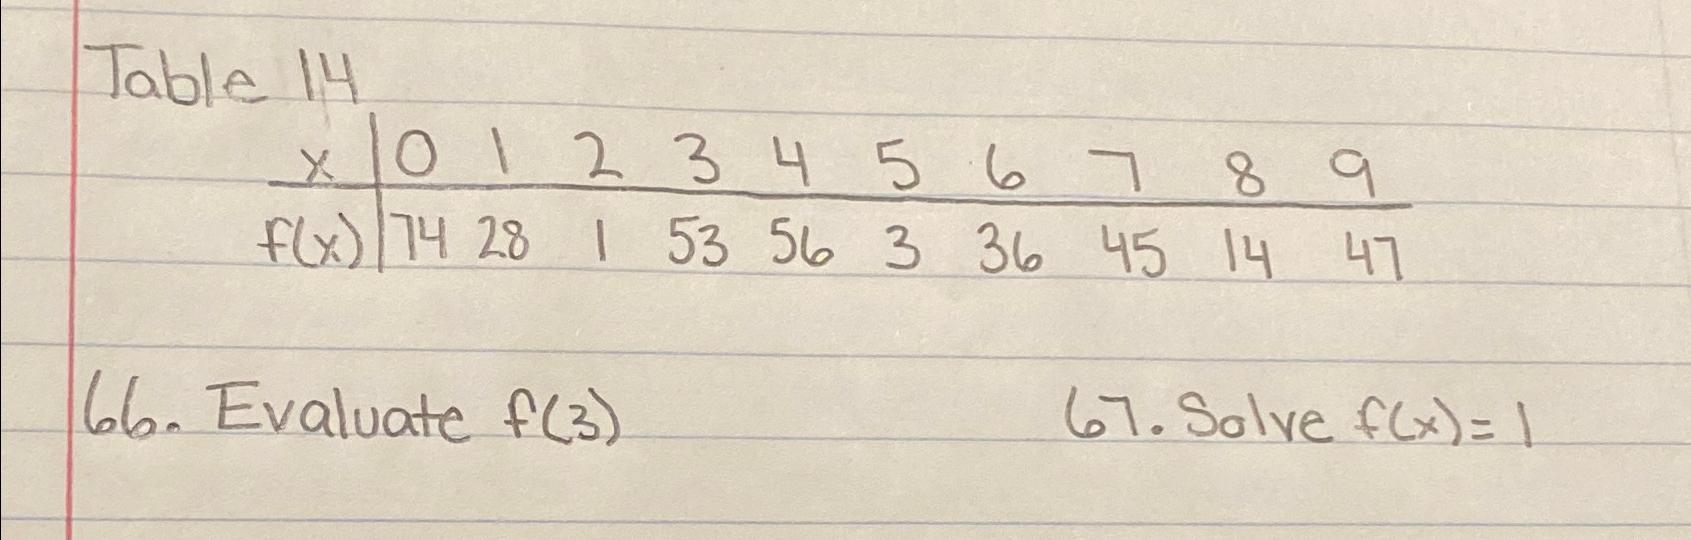 Table 14
x 0 1 2 3 4 5 6 7 8 9
f(x) 74 28 1 53 56 3 36 45 14 47
66. Evaluate f(3) 67. Solve f(x)=1